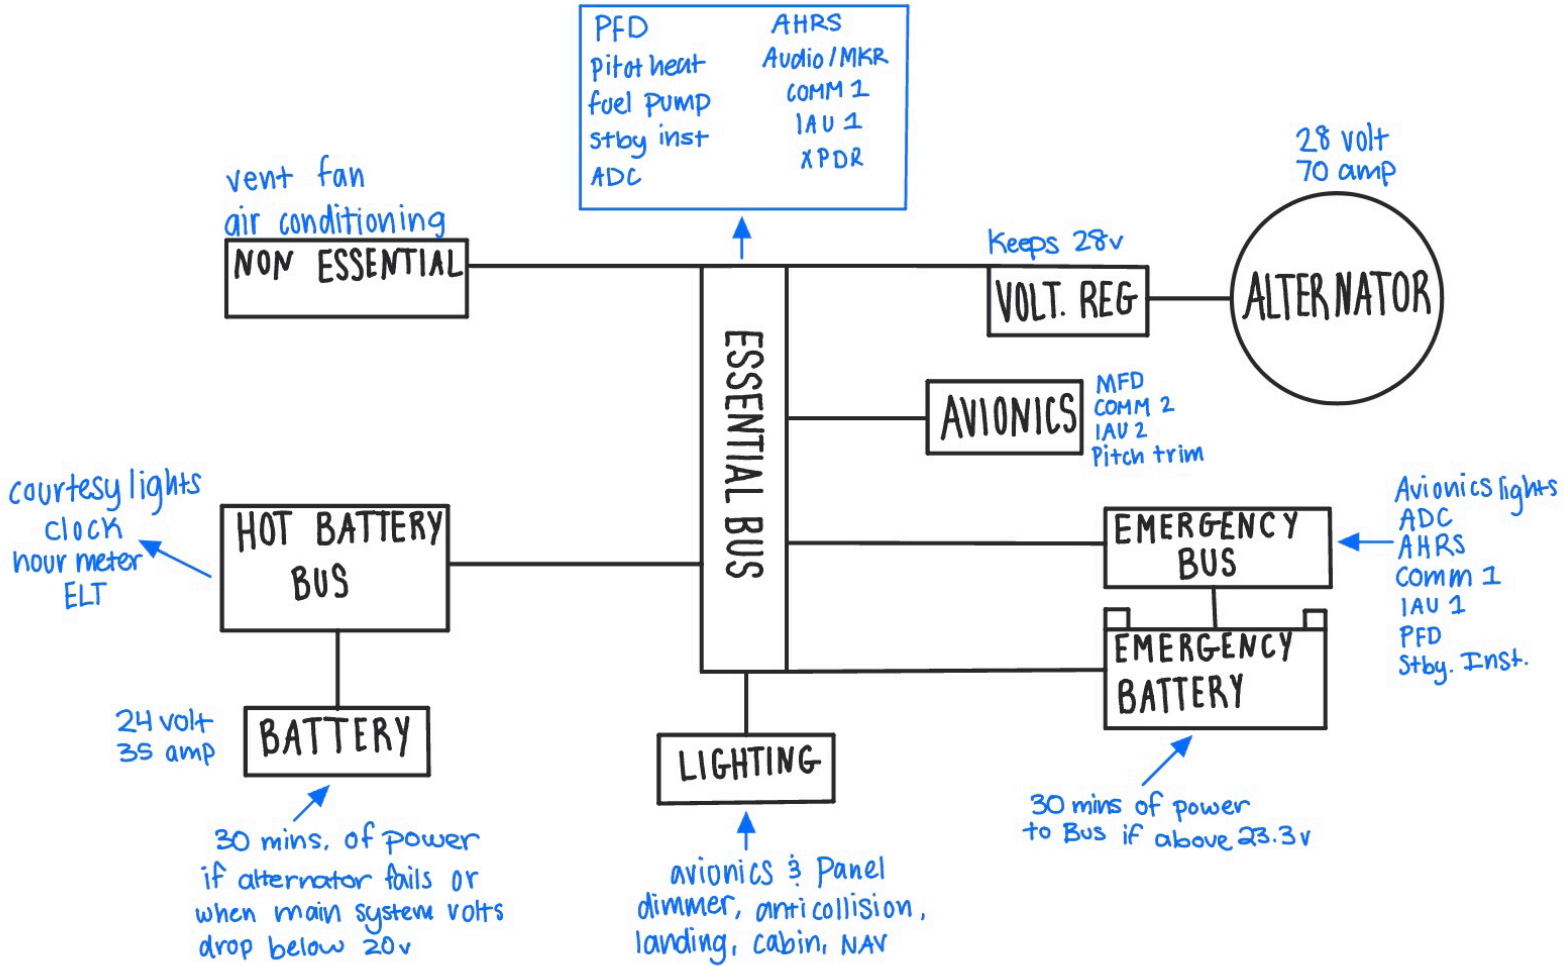 PFD
Pitot heat
fuel pump
Stby inst
ADC
AHRS
Audio/MKR
COMM 1
IAU 1
XPDR
vent fan
air conditioning
NON ESSENTIAL
Keeps 28v
VOLT. REG
28 volt
70 amp
ALTERNATOR
ESSENTIAL BUS
AVIONICS
MFD
COMM 2
IAU 2
Pitch trim
courtesy lights
clock
hour meter
ELT
HOT BATTERY
BUS
EMERGENCY
BUS
Avionics lights
ADC
AHRS
Comm 1
IAU 1
PFD
Stby. Inst.
EMERGENCY
BATTERY
24 volt
35 amp
BATTERY
LIGHTING
30 mins. of power
if alternator fails or
when main system volts
drop below 20v
avionics & Panel
dimmer, anticollision,
landing, cabin, NAV
30 mins of power
to Bus if above 23.3v